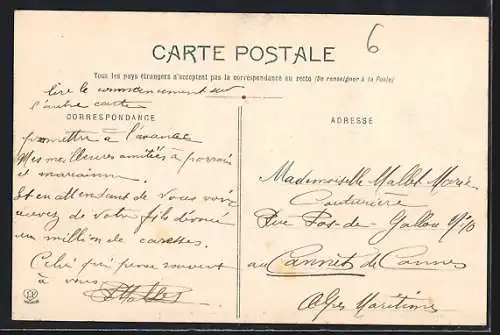 6
CARTE POSTALE
Tous les pays étrangers n'acceptent pas la correspondance au recto (Se renseigner à la Poste)
lire le commencement sur
l'autre carte
CORRESPONDANCE
ADRESSE
promettre à l'avance
Mes meilleures amitiés à parrain
et marraine.
Et en attendant de vous voir
recevez de votre fils dévoué
un million de caresses.
Celui qui pense souvent
à vous
Mallet
Mademoiselle Mallet Marie
Couturière
Rue Pas-de-Gallou Nº10
au Cannet de Cannes
Alpes Maritimes